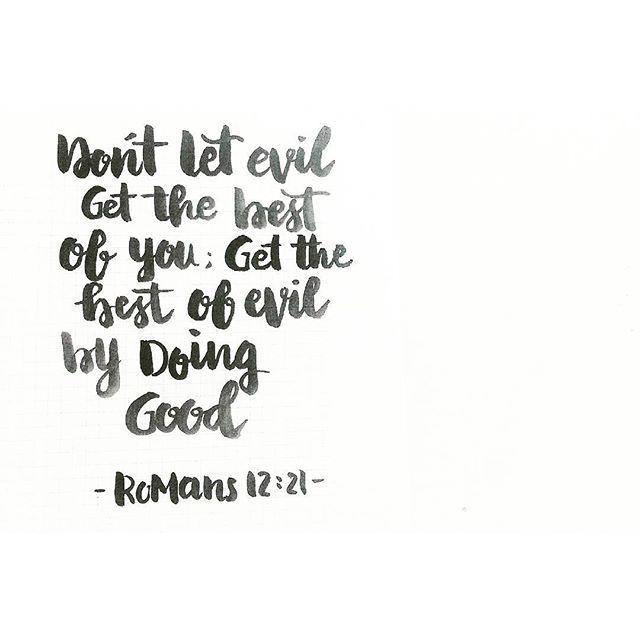 Don't let evil
Get the best
of you; Get the
best of evil
by Doing
Good
- RoMans 12:21 -